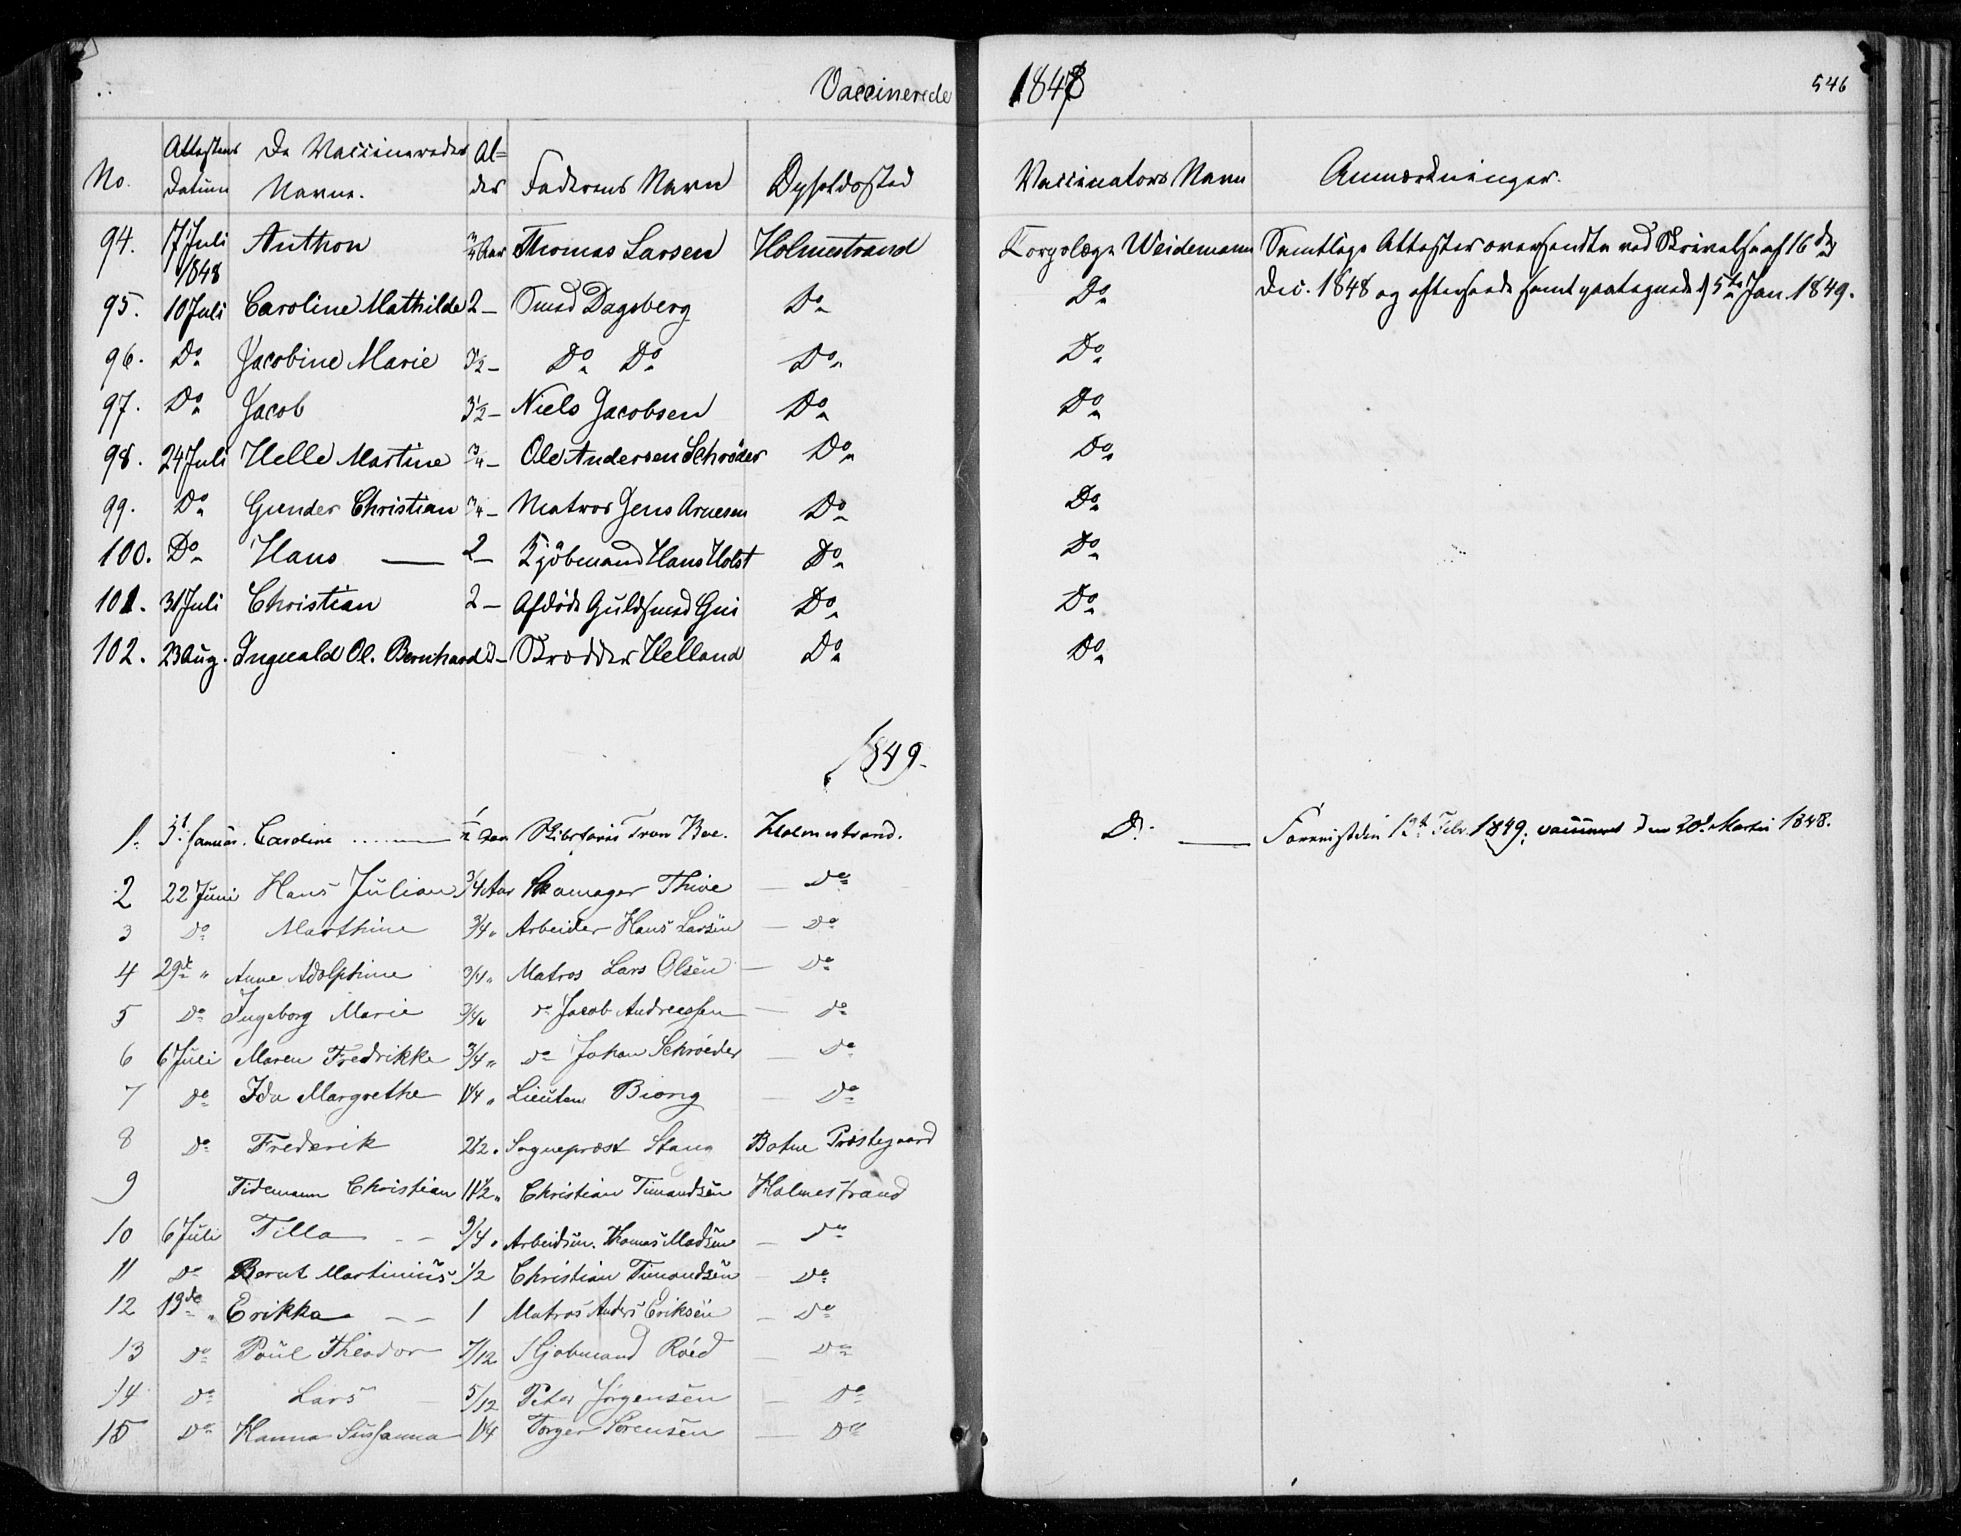 Vaccinerede 1848
546
No. Attestens Datum De Vaccineredes Navne. Alder Faderens Navn Opholdssted Vaccinators Navn Anmærkninger.
94. 17 Juli 1848 Anthon 3/4 Aar Thomas Larsen Holmestrand Korpslæge Weidemann Samtlige Attester oversendte ved Skrivelse af 16de
95. 10 Juli Caroline Mathilde 2 — Smed Dagsberg Do Do Dec. 1848 og efterseede samt paategnede 5te Jan 1849.
96. Do Jacobine Marie 1/2 — Do Do Do Do
97. Do Jacob 3 1/2 — Niels Jacobsen Do Do
98. 24 Juli Helle Martine 3/4 — Ole Andersen Schrøder Do Do
99. Do Gunder Christian 3/4 — Matros Jens Arnesen Do Do
100. Do Hans — 2 — Kjöbmand Hans Holst Do Do
101. 31 Juli Christian 2 — Afdöde Guldsmed Do Do
102. 23 Aug. Ingvald Ol. Bernhard — Skrædder Helland Do Do
1849.
1. Januar. Caroline ...... Aar Tron Boe. Holmestrand. D. — den 12t Febr. 1849. vaccineret den 20d Martii 1848.
2 22 Juni Hans Julian 3/4 Aar Skomager Thive — Do
3 Do Marthine 3/4 " Arbeider Hans Larsen — Do
4 29de " Anne Adolphine 3/4 " Matros Lars Olsen — Do
5 Do Ingeborg Marie 3/4 " do Jacob Andreassen — Do
6 6 Juli Maren Fredrikke 3/4 " do Johan Schrøeder — Do
7 Do Ida Margrethe 1 1/4 " Lieuten Biong — Do
8 Do Frederik 2 1/2 " Sogneprest Stang Botne Præstegaard
9 Tidemann Christian 1 1/2 " Christian Timandsen Holmestrand
10 6 Juli Tilla — 9/4 " Arbeidsm. Thomas Madsen — Do
11 Do Bernt Martinius 1/2 Christian Timandsen — Do
12 13de " Erikka — 1 Matros Anders Eriksen — Do
13 Do Poul Theodor 7/12 Kjobmand Røed — Do
14 Do Lars — 5/12 Peter Jørgensen — Do
15 Do Hanna Susanna 1 1/4 Torger Sørensen — Do